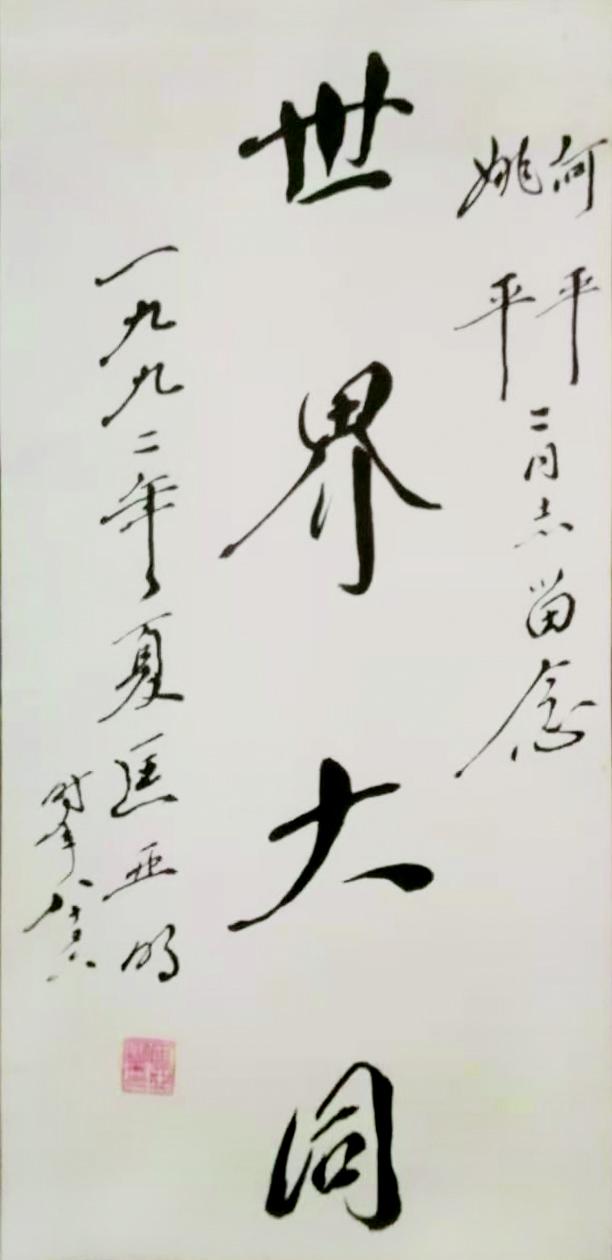 何平
姚平
二同志留念
世界大同
一九九二年夏匡亚明
时年八十六